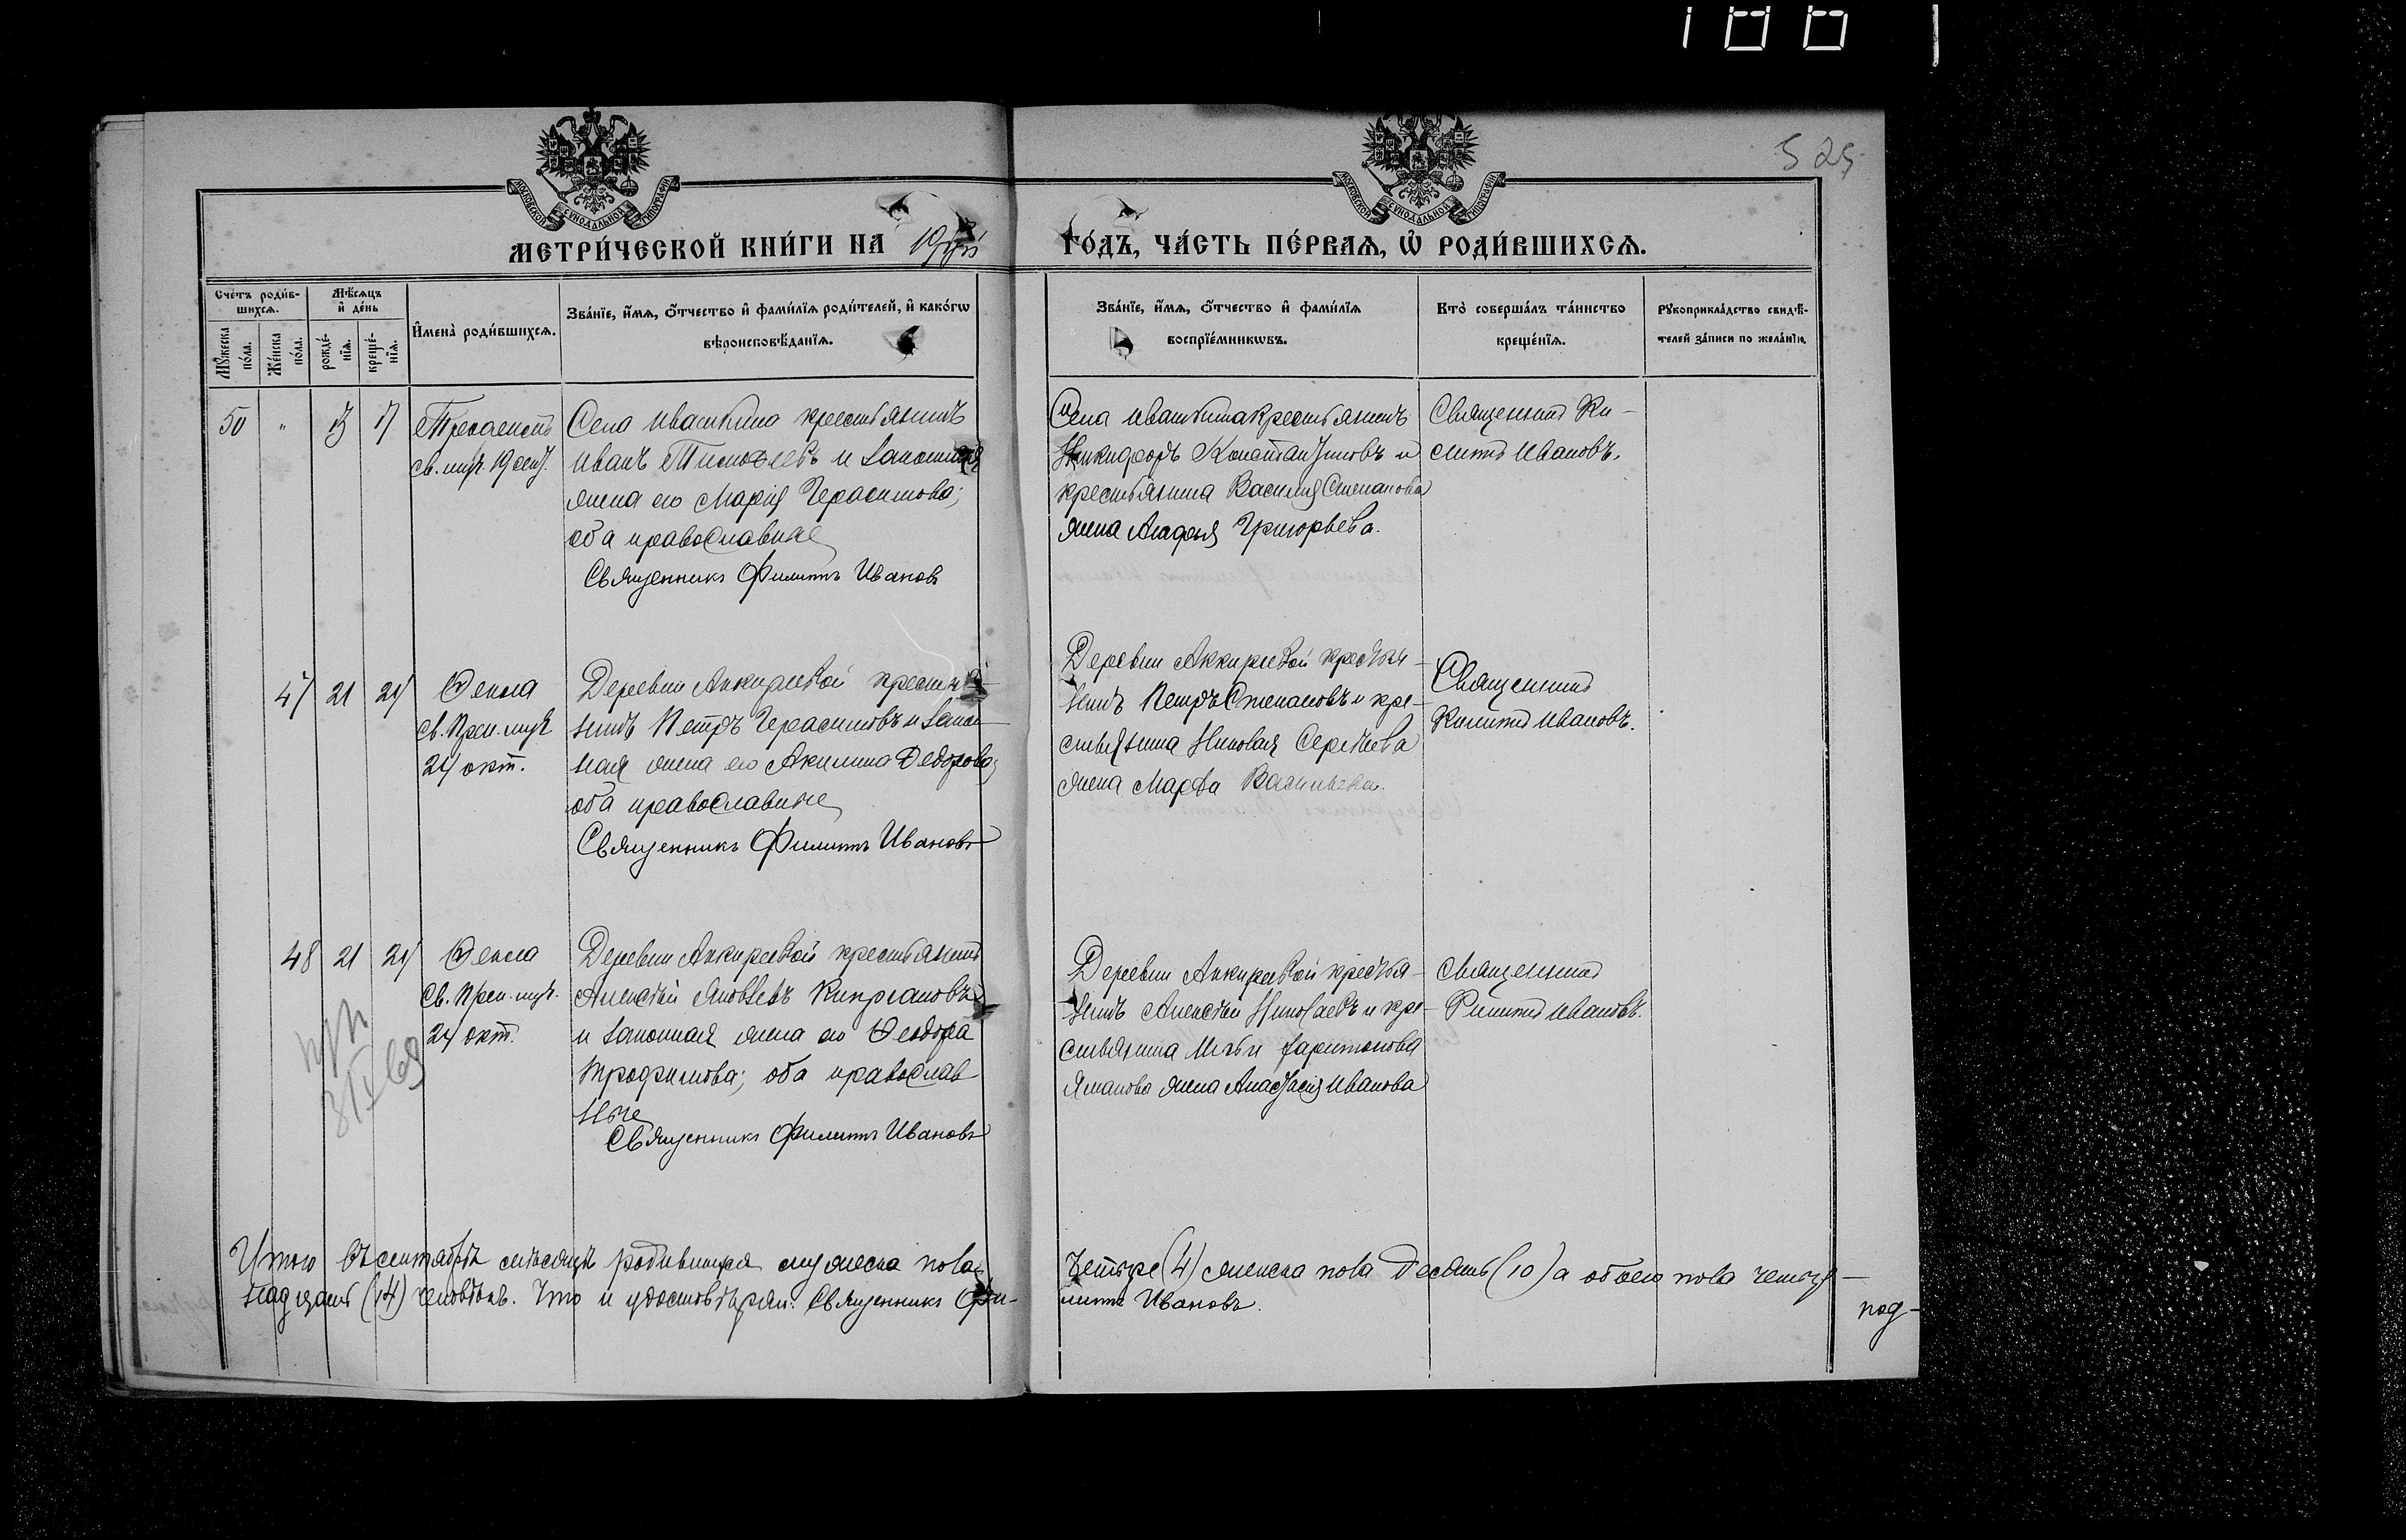 525
МОСКОВСКОЙ СѴНОДАЛЬНОЙ ТИПОГРАФІИ
МОСКОВСКОЙ СѴНОДАЛЬНОЙ ТИПОГРАФІИ
МЕТРИ́ЧЕСКОЙ КНИ́ГИ НА 19
ГО́ДЪ, ЧА́СТЬ ПЕ́РВАѦ, Ѡ҆ РОДИ́ВШИХСѦ.
Сче́тъ роди́в-
шихсѧ.
Мꙋ́жеска
по́ла.
Же́нска
по́ла.
Мѣ́сѧцъ
и҆ де́нь
рожде́-
нїѧ.
креще́-
нїѧ.
И҆мена̀ роди́вшихсѧ.
Зва́нїе, и҆́мѧ, ѻ҆́тчество и҆ фами́лїѧ роди́телей, и҆ како́гѡ
вѣроисповѣ́данїѧ.
Зва́нїе, и҆́мѧ, ѻ҆́тчество и҆ фами́лїѧ
воспрїе́мникѡвъ.
Кто̀ соверша́лъ та́инство
креще́нїѧ.
Рꙋкоприкла́дство свидѣ́-
телей за́писи по жела́нїю.
50 " 13 17
св. муч. 19 сент.
Села Ивашкина крестьянинъ
Иванъ Тимофеевъ и законная
жена его Марія Герасимова;
оба православные
Священникъ Филиппъ Ивановъ
Села Ивашкина крестьянинъ
Никифоръ Константиновъ и
крестьянина Василія Степанова
жена Агафья Григорьева.
Священникъ Фи-
липпъ Ивановъ.
47 21 24 Ѳекла
св. Преп. муч.
24 окт.
Деревни Аккиревой крестья-
нинъ Петръ Герасимовъ и закон-
ная жена его Акилина Ѳедорова;
оба православные
Священникъ Филиппъ Ивановъ
Деревни Аккиревой крестья-
нинъ Петръ Степановъ и кре-
стьянина Николая Сергѣева
жена Марѳа Васильева.
Священникъ
Филиппъ Ивановъ.
48 21 24 Ѳекла
Св. Преп. муч.
24 окт.
Деревни Аккиревой крестьянинъ
Алексѣй Яковлевъ Кипріановъ
и законная жена его Ѳеодора
Трофимова; оба православ
ные
Священникъ Филиппъ Ивановъ
Деревни Аккиревой крестья-
нинъ Алексѣй Николаевъ и кре-
стьянина Ильи Харитонова
Яманова жена Анастасія Иванова
Священникъ
Филиппъ Ивановъ.
Итого въ сентябрѣ мѣсяцѣ родившихся мужеска пола
четыре (4) женска пола десять (10) а обоего пола четыр-
надцать (14) человѣкъ. Что и удостовѣряю: Священникъ Фи-
липпъ Ивановъ.
под-